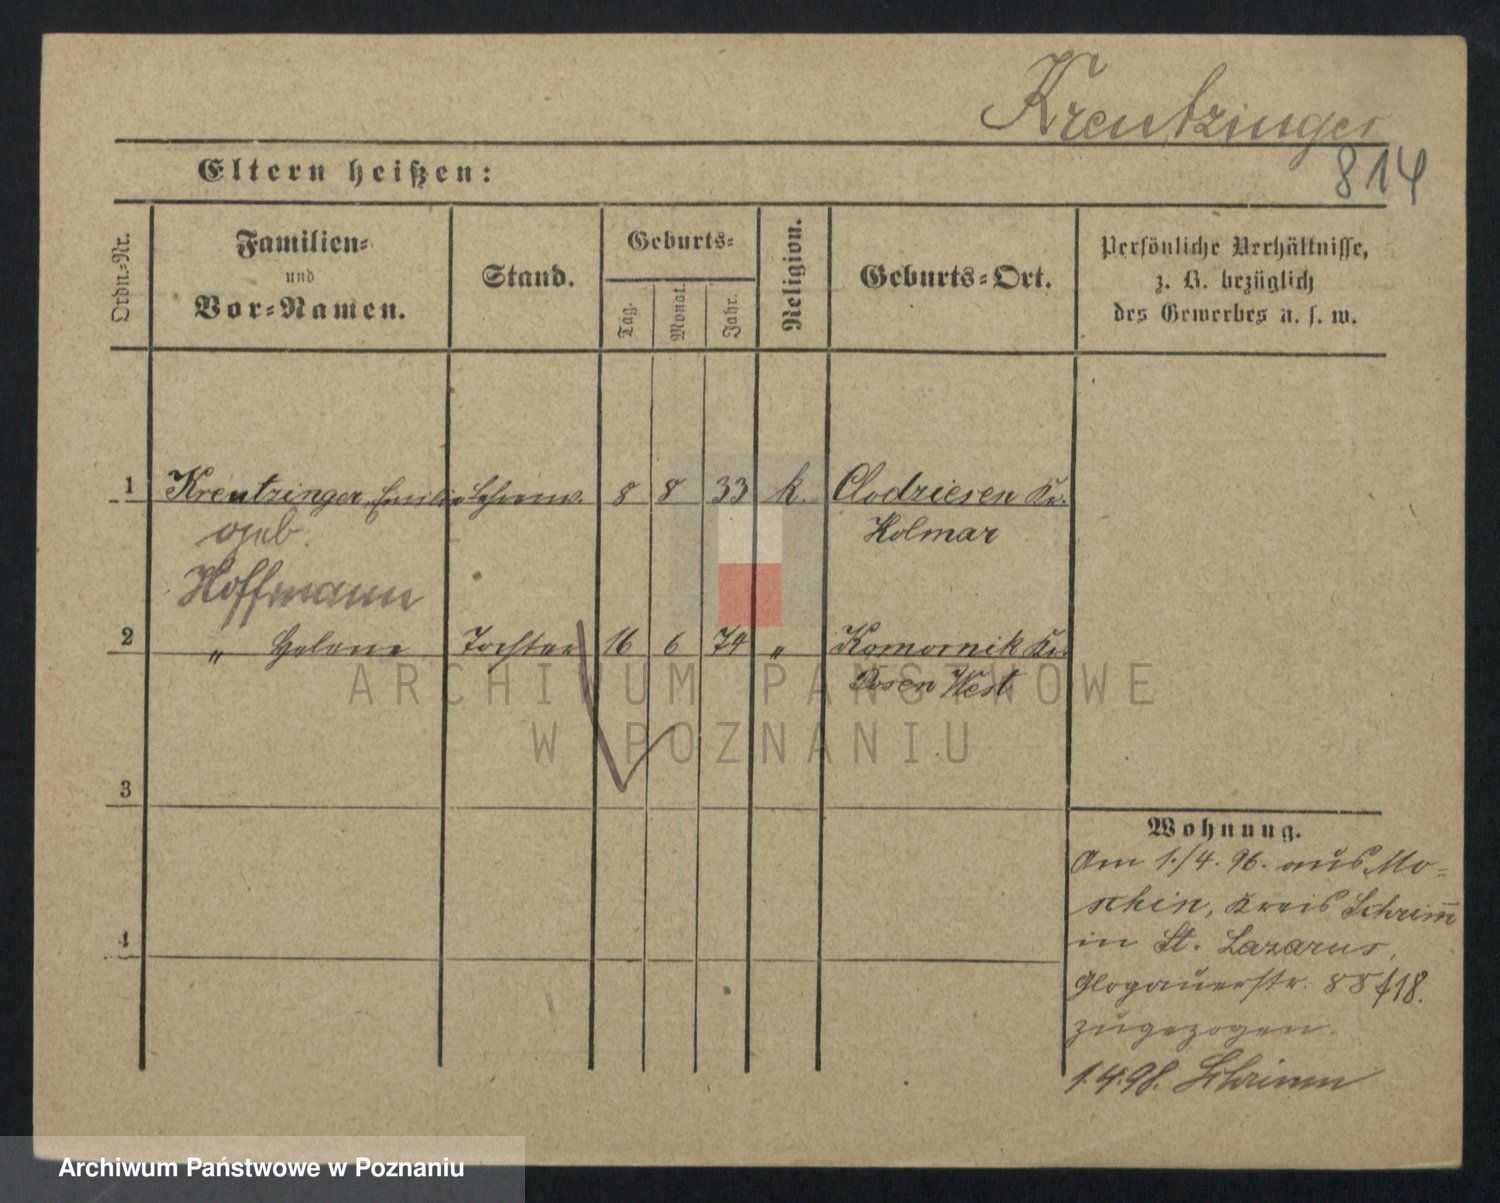 Kreutzinger
814
Eltern heißen:
Ordn.-Nr.
Familien-
und
Vor-Namen.
Stand.
Geburts-
Tag.
Monat.
Jahr.
Religion.
Geburts-Ort.
Persönliche Verhältnisse,
z. B. bezüglich
des Gewerbes u. s. w.
1 Kreutzinger, Emilie Lehrerw. 8 8 33 k. Clodziesen Kr.
geb. Kolmar
Hoffmann
2 " Helene Tochter 16 6 74 " Komornik Kr.
Posen West
3
4
Wohnung.
Am 1./4. 96. aus Mo-
schin, Kreis Schrimm
in St. Lazarus,
Glogauerstr. 88 f 18.
zugezogen.
1.4.98. Schrimm
ARCHIWUM PAŃSTWOWE
W POZNANIU
Archiwum Państwowe w Poznaniu